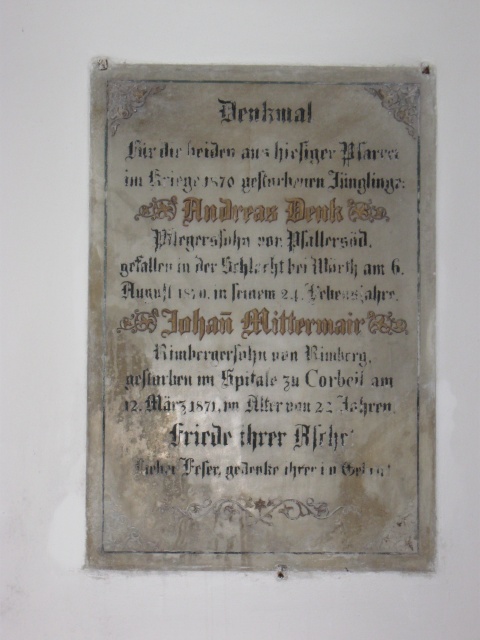 Denkmal
Für die beiden aus hiesiger Pfarrei
im Kriege 1870 gestorbenen Jünglinge:
Andreas Denk
Pflegerssohn von Pfallersöd,
gefallen in der Schlacht bei Wörth am 6.
August 1870, in seinem 24. Lebensjahre.
Johañ Mittermair
Rimbergersohn von Rimberg,
gestorben im Spitale zu Corbeil am
12. März 1871, im Alter von 22 Jahren.
Friede ihrer Asche!
Lieber Leser, gedenke ihrer im Gebete!